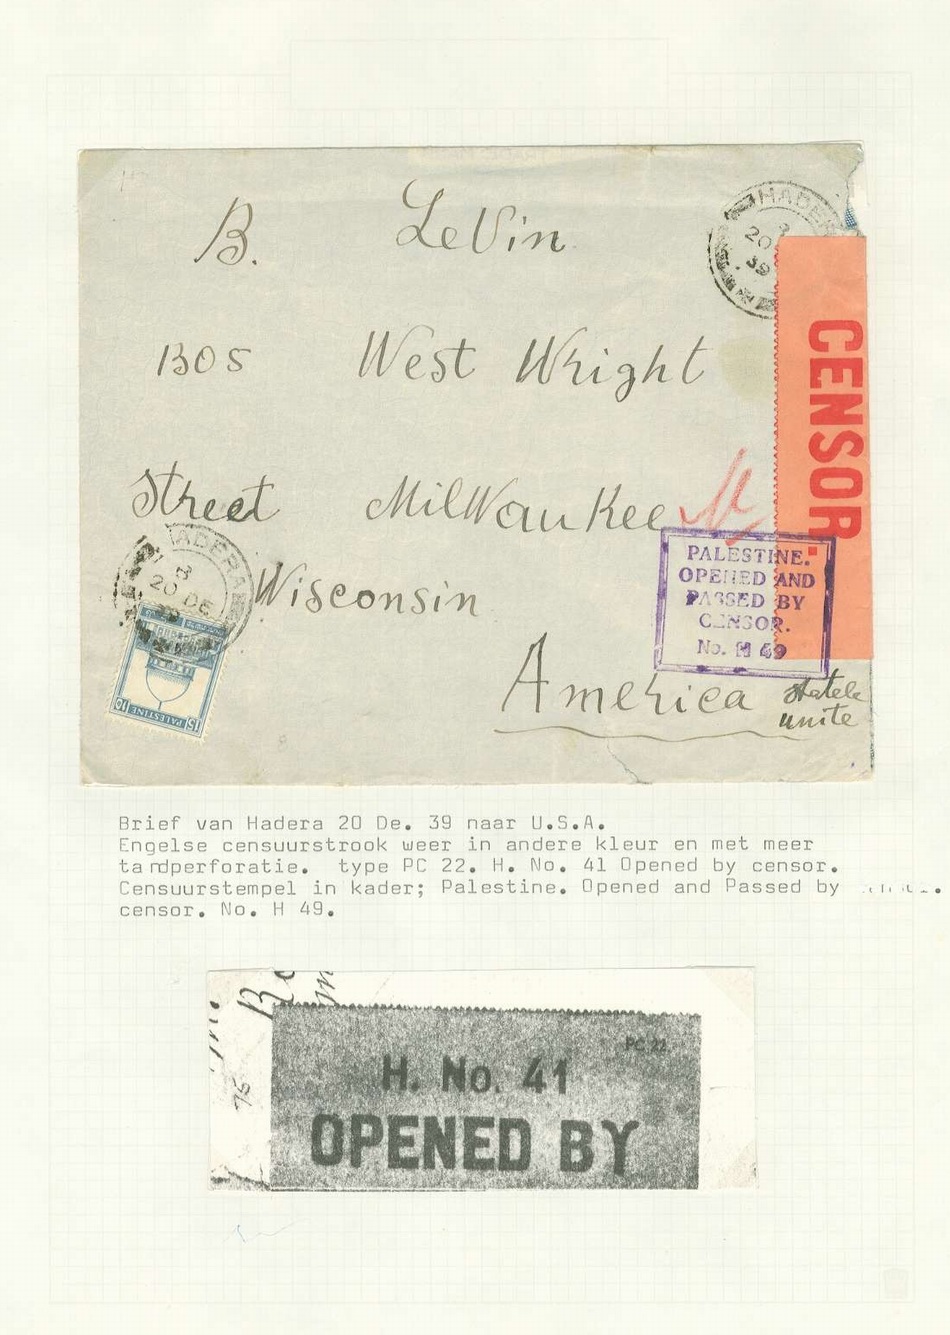 B. LeVin
1305 West Wright
Street MilWauKee
Wisconsin
America
statele
unite
HADERA
20
39
HADERA
20 DE
PALESTINE
15
CENSOR.
PALESTINE.
OPENED AND
PASSED BY
CENSOR.
No. H 49
Brief van Hadera 20 De. 39 naar U.S.A.
Engelse censuurstrook weer in andere kleur en met meer
tandperforatie. type PC 22. H. No. 41 Opened by censor.
Censuurstempel in kader; Palestine. Opened and Passed by
censor. No. H 49.
PC 22
H. No. 41
OPENED BY
75